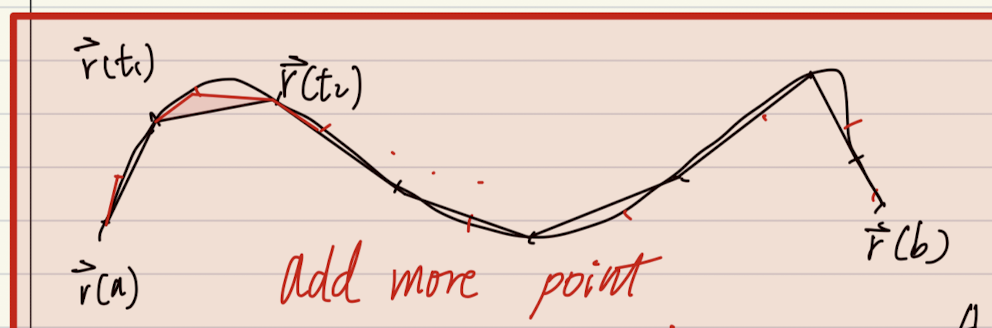 r⃗(t₁)
r⃗(t₂)
r⃗(b)
r⃗(a)
add more point